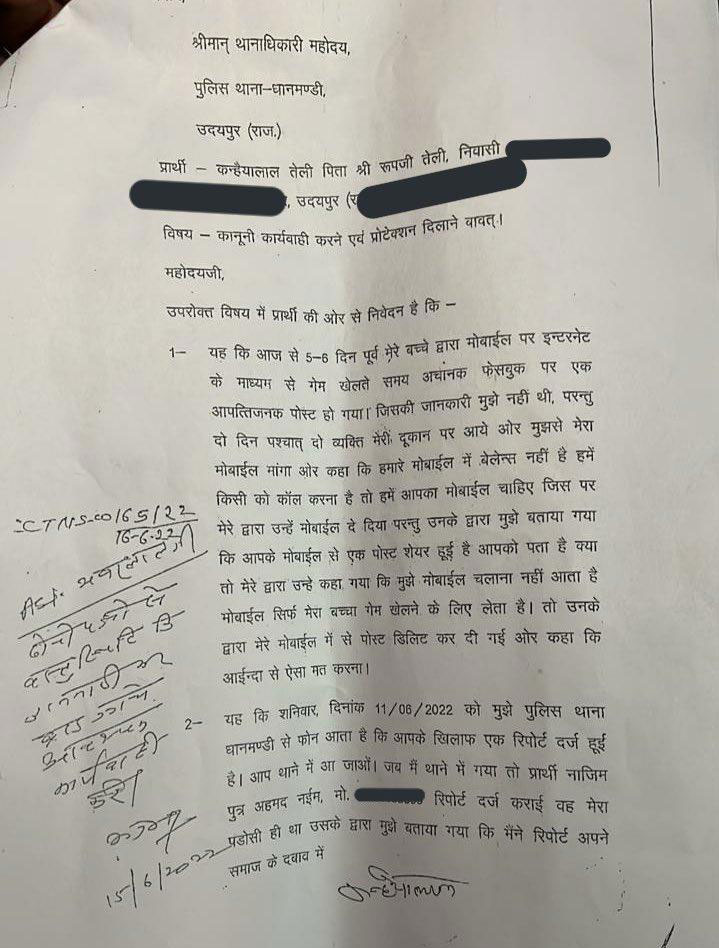 श्रीमान् थानाधिकारी महोदय,
पुलिस थाना–धानमण्डी,
उदयपुर (राज.)
प्रार्थी – कन्हैयालाल तेली पिता श्री रूपजी तेली, निवासी
, उदयपुर (र
विषय – कानूनी कार्यवाही करने एवं प्रोटेक्शन दिलाने वावत्।
महोदयजी,
उपरोक्त विषय में प्रार्थी की ओर से निवेदन है कि –
1– यह कि आज से 5–6 दिन पूर्व मेरे बच्चे द्वारा मोबाईल पर इन्टरनेट
के माध्यम से गेम खेलते समय अचांनक फेसबुक पर एक
आपत्तिजनक पोस्ट हो गया। जिसकी जानकारी मुझे नहीं थी, परन्तु
दो दिन पश्चात् दो व्यक्ति मेरी दूकान पर आये ओर मुझसे मेरा
मोबाईल मांगा ओर कहा कि हमारे मोबाईल में बेलेन्स नहीं है हमें
किसी को कॉल करना है तो हमें आपका मोबाईल चाहिए जिस पर
मेरे द्वारा उन्हें मोबाईल दे दिया परन्तु उनके द्वारा मुझे बताया गया
कि आपके मोबाईल से एक पोस्ट शेयर हूई है आपको पता है क्या
तो मेरे द्वारा उन्हे कहा गया कि मुझे मोबाईल चलाना नहीं आता है
मोबाईल सिर्फ मेरा बच्चा गेम खेलने के लिए लेता है। तो उनके
द्वारा मेरे मोबाईल में से पोस्ट डिलिट कर दी गई ओर कहा कि
आईन्दा से ऐसा मत करना।
2– यह कि शनिवार, दिनांक 11/06/2022 को मुझे पुलिस थाना
धानमण्डी से फोन आता है कि आपके खिलाफ एक रिपोर्ट दर्ज हूई
है। आप थाने में आ जाओं। जब मैं थाने में गया तो प्रार्थी नाजिम
पुत्र अहमद नईम, मो. रिपोर्ट दर्ज कराई वह मेरा
पडोसी ही था उसके द्वारा मुझे बताया गया कि मैंने रिपोर्ट अपने
समाज के दवाव में
16-6-22
दोनो पक्षो से
आवश्यक
कार्यवाही
करे।
15/6/2022